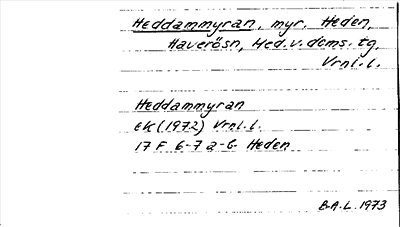 Heddammyran, myr. Heden,
Haverösn, Hed.v.doms.tg,
Vrnl.l.
Heddammyran
ek (1972) Vrnl.l.
17 F 6-7 a-b Heden
B.A.L. 1973